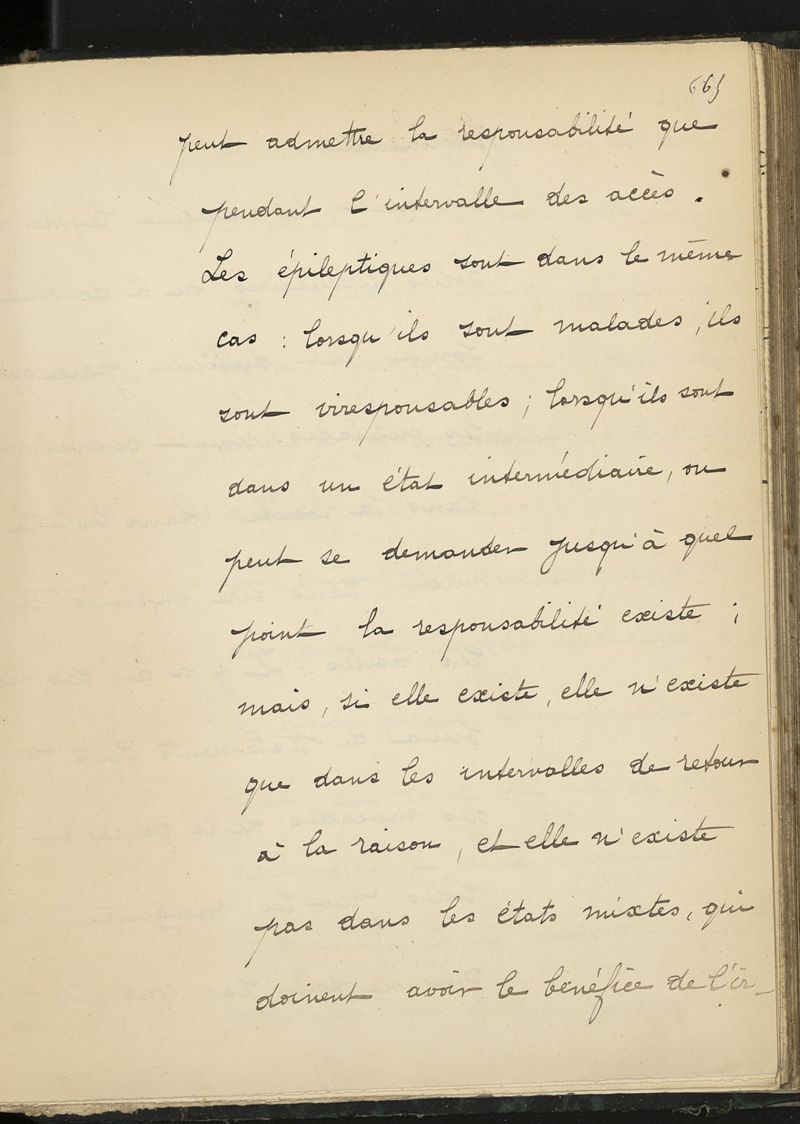 665
peut admettre la responsabilité que
pendant l'intervalle des accès.
Les épileptiques sont dans le même
cas : lorsqu'ils sont malades, ils
sont irresponsables ; lorsqu'ils sont
dans un état intermédiaire, on
peut se demander jusqu'à quel
point la responsabilité existe ;
mais, si elle existe, elle n'existe
que dans les intervalles de retour
à la raison, et elle n'existe
pas dans les états mixtes, qui
doivent avoir le bénéfice de l'ir-